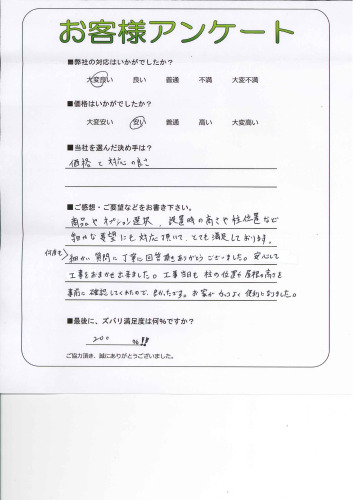 お客様アンケート
■弊社の対応はいかがでしたか？
大変良い 良い 普通 不満 大変不満
■価格はいかがでしたか？
大変安い 安い 普通 高い 大変高い
■当社を選んだ決め手は？
価格と対応の良さ
■ご感想・ご要望などをお書き下さい。
商品やオプション選択、設置時の高さや柱位置など
細かな要望にも対応頂いて、とても満足しております。
何度も
細かい質問に丁寧に回答頂きありがとうございました。安心して
工事をおまかせ出来ました。工事当日も柱の位置や屋根の高さを
事前に確認してくれたので、良かったです。お家がかっこよく便利になりました。
■最後に、ズバリ満足度は何%ですか？
200 %!!
ご協力頂き、誠にありがとうございました。